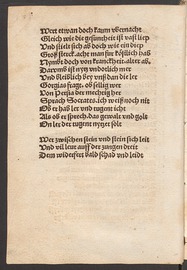 Wert etwan doch kaum übernacht
Gleich wie die gesuntheit ist vast liep
Und stielt sich ab doch wie ein diep
Groß sterck acht man für köstlich baß
Nymbt doch von kranckheit alter ab
Darumb ist nytz undötlich mer
Und bleiblich bey unß dan die ler
Gorgias fragt ob sellig wer
Von Persia der mechtig her
Sprach Socrates ich weiß noch nit
Ob er hab ler und tugent icht
Als ob er sprech das gewalt und golt
On ler der tugent nytzet solt

Wer zwischen stein und stein sich leit
Und vil leut auff der zungen dreit
Dem widerfert bald schad und leidt